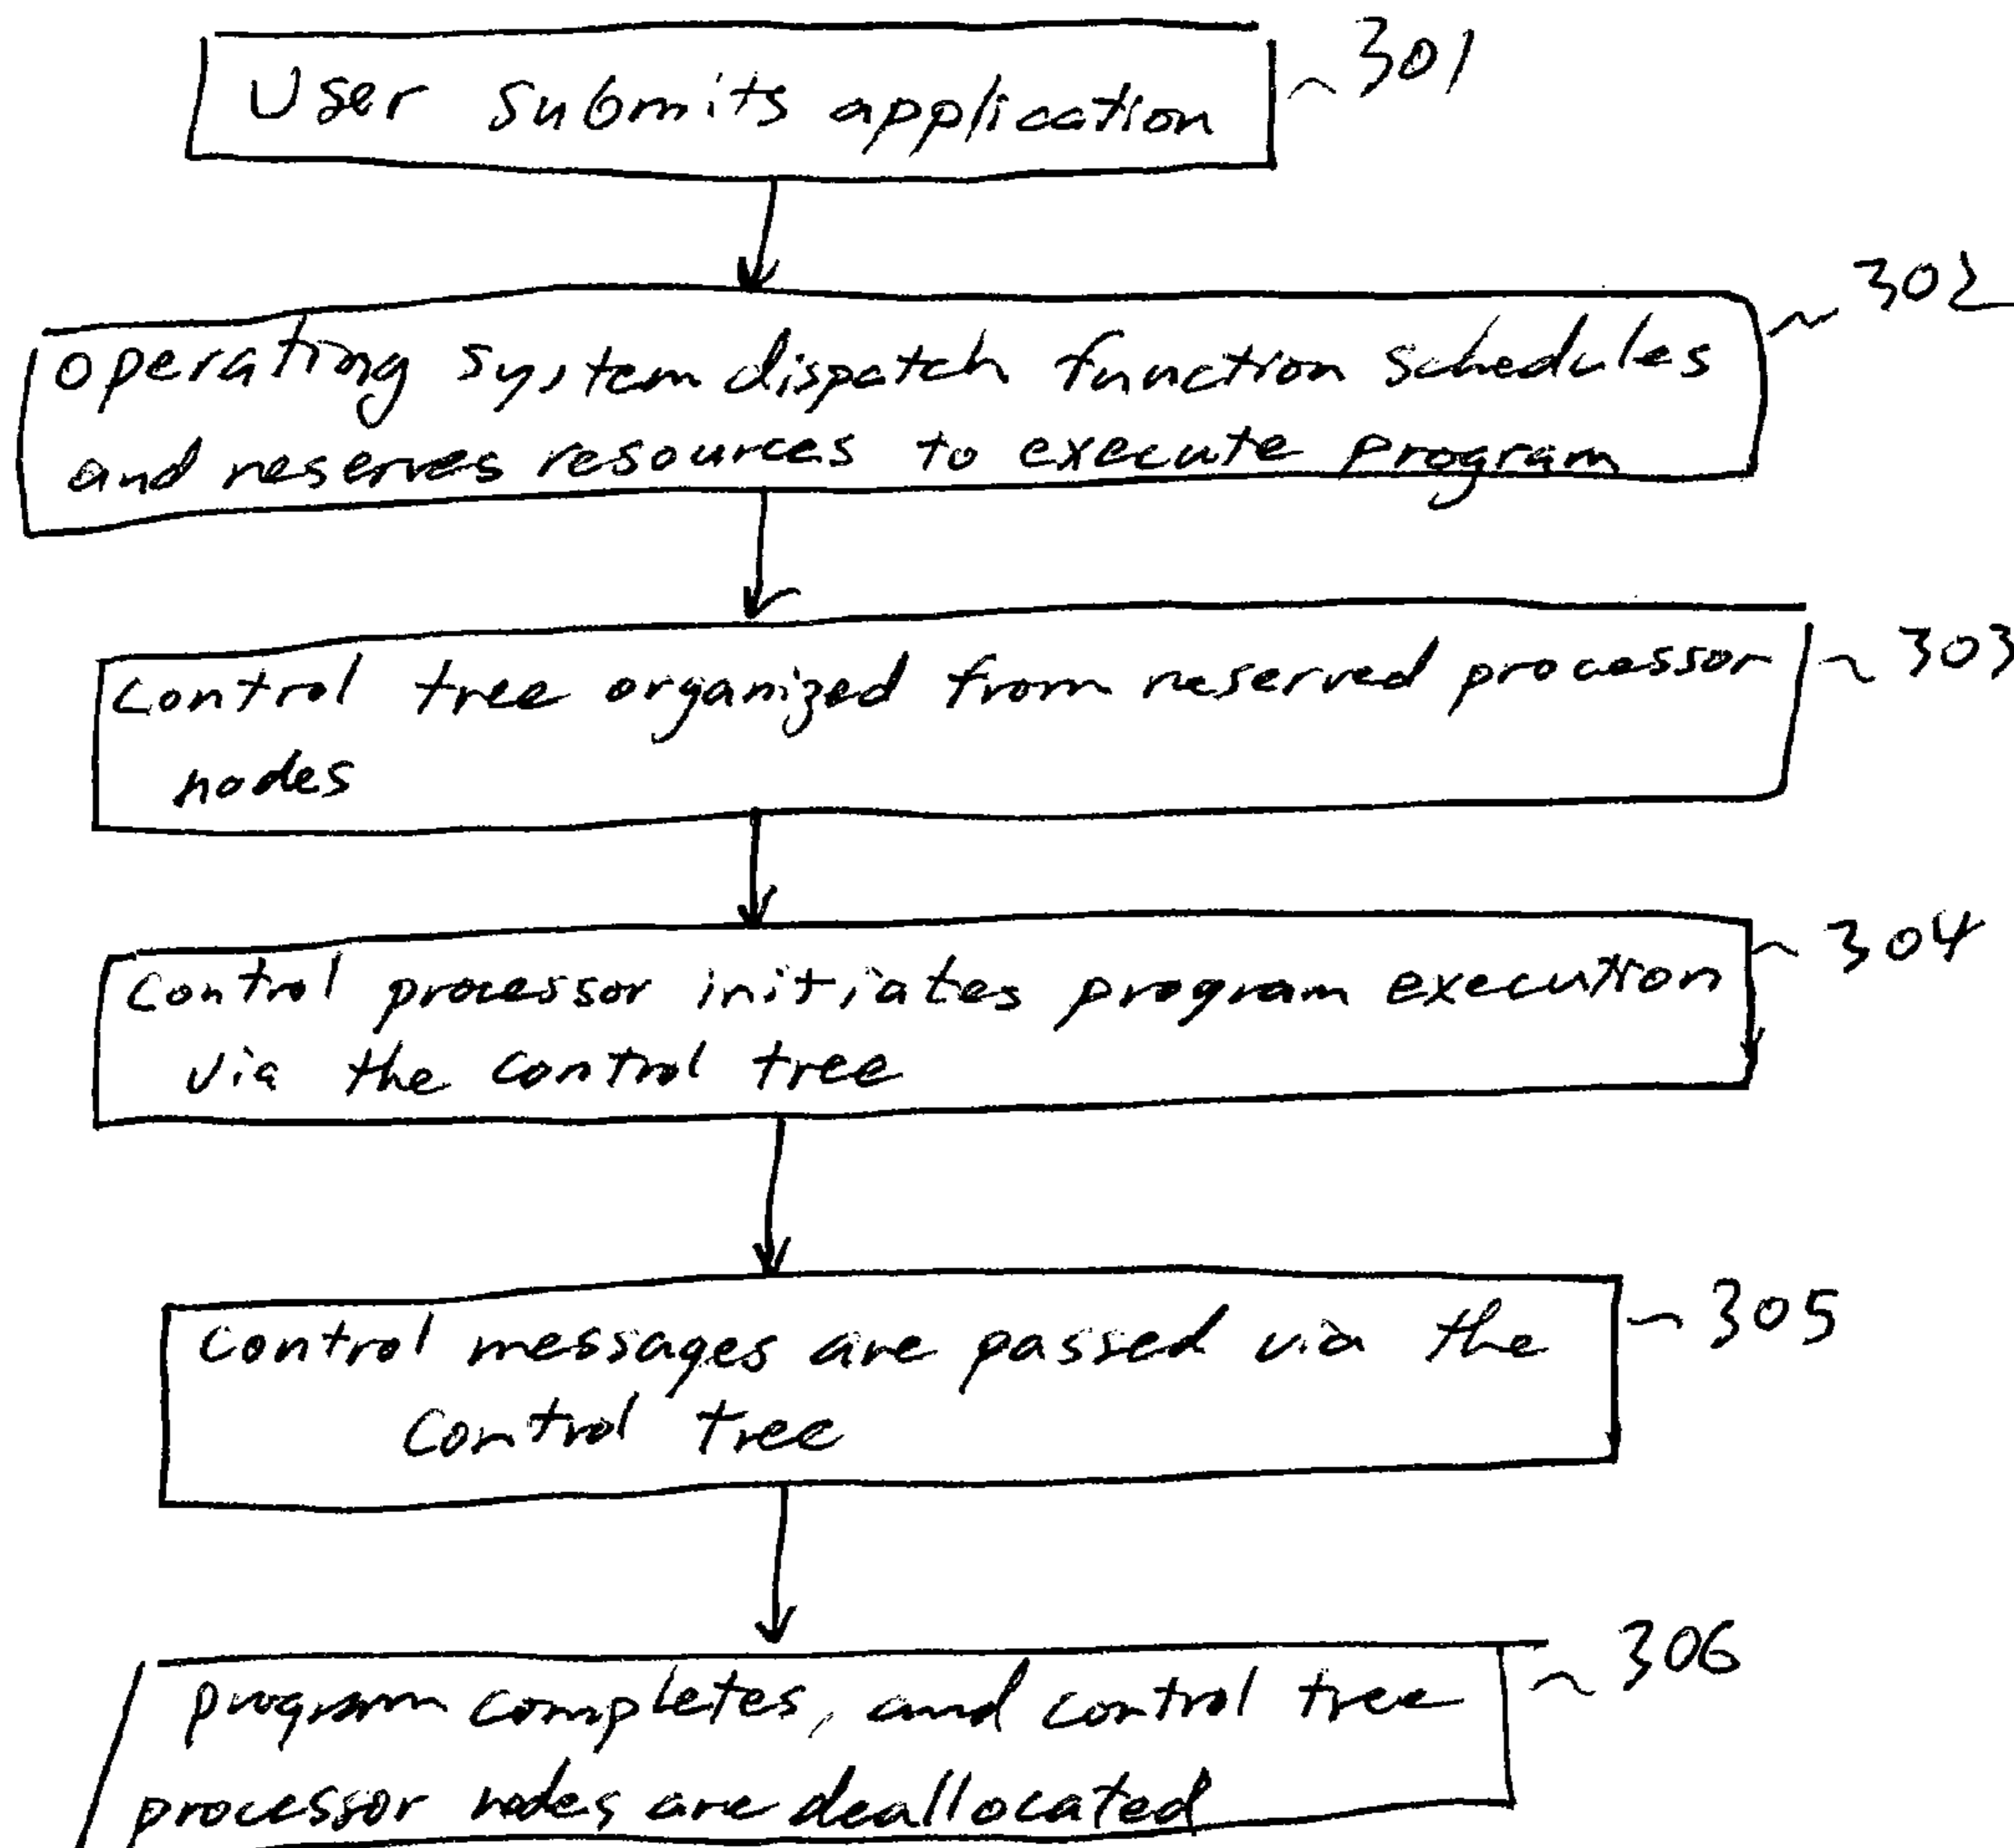 User submits application ~ 301
operating system dispatch function schedules ~ 302
and reserves resources to execute program
control tree organized from reserved processor ~ 303
nodes
control processor initiates program execution ~ 304
via the control tree
control messages are passed via the ~ 305
control tree
program completes, and control tree ~ 306
processor nodes are deallocated